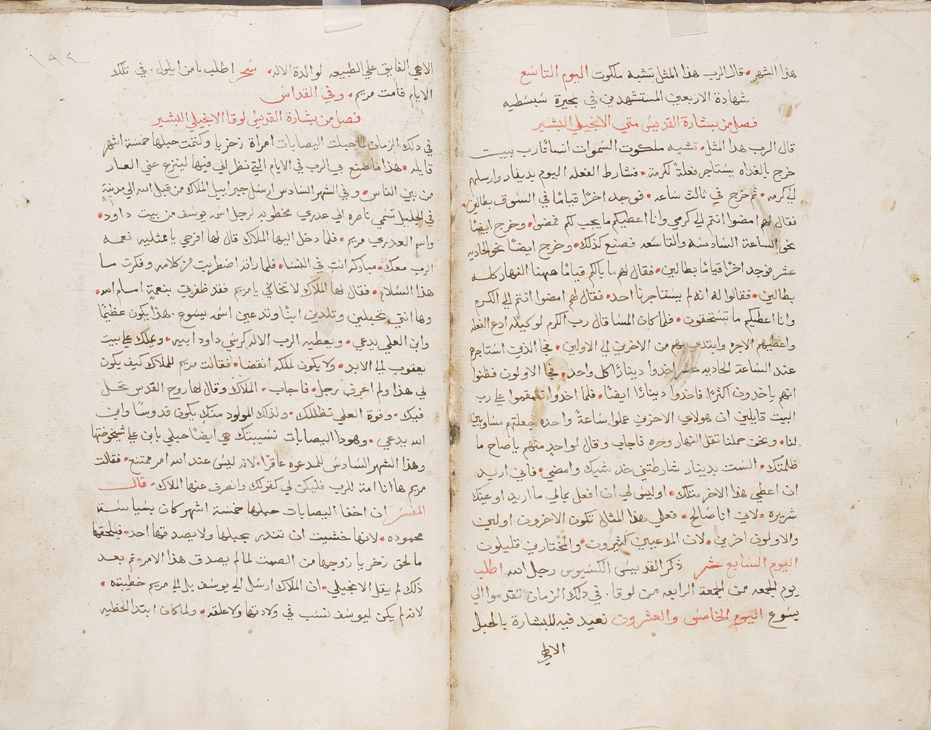 هذا الشهر • قال الرب هذا المثل تشبه ملكوت اليوم التاسع
شهادة الاربعين المستشهدين في بحيرة سبسطيه
فصل من بشارة القديس متي الانجيلي البشير
قال الرب هذا المثل • تشبه ملكوت السموات انسانا رب بيت
خرج بالغداه يستاجر فعلة لكرمه • فشارط الفعله اليوم بدينار وارسلهم
الي كرمه • ثم خرج في ثالث ساعه • فوجد اخرًا قيامًا في السوق بطالين
فقال لهم امضوا انتم الي كرمي وانا اعطيكم ما يجب لكم فمضوا • وخرج ايضًا
نحو الساعة السادسه والتاسعه فصنع كذلك • وخرج ايضًا نحو الحاديه
عشر فوجد اخرًا قيامًا بطالين • فقال لهم ما بالكم قيامًا ههنا النهار كله
بطالين • فقالوا له انه لم يستاجرنا احد • فقال لهم امضوا انتم الي الكرم
وانا اعطيكم ما تستحقون • فلما كان المسا قال رب الكرم لوكيله ادع الفعله
واعطيهم الاجره وابتدي بهم من الاخرين الي الاولين • فجا الذين استاجرهم
عند الساعة الحاديه عشر اخدوا دينارًا كل واحد • فجا الاولون فظنوا
انهم ياخدون اكثر • فاخدوا دينارًا ايضًا • فلما اخدوا تقمقموا علي رب
البيت قايلين ان هولاي الاخرين عملوا ساعةً واحده فجعلتهم مساويين
لنا • ونحن حملنا ثقل النهار وحره فاجاب وقال لواحدٍ منهم ياصاح ما
ظلمتك • الست بدينار شارطتني خد شيك وامضي • فاني اريد
ان اعطي هذا الاخر مثلك • اوليس لي ان افعل بمالي ما اريد او عينك
شريره • لاني انا صالح • فعلي هذا المثال تكون الاخرون اولين
والاولون اخرين • لان المدعيين كثيرون • والمختارين قليلون
اليوم السابع عشر ذكر القديس الكسيوس رجل الله اطلب
يوم الجمعه من الجمعة الرابعه من لوقا • في ذلك الزمان تقدموا الي
يسوع اليوم الخامس والعشرون نعيد فيه للبشارة بالحبل
الالهي
الالهي الفايق علي الطبيعه لوالدة الاله • سحر اطلب ثامن ايلول • في تلك
الايام قامت مريم • وفي القداس
فصل من بشارة القديس لوقا الانجيلي البشير
في ذلك الزمان حبلت اليصابات امراة زخريا وكتمت حبلها خمسة اشهر
قايله • هذا ما صنع بي الرب في الايام التي نظر الي فيها لينزع عني العار
من بين الناس • وفي الشهر السادس ارسل جبراييل الملاك من قبل الله الي مدينةٍ
في الجليل تسمي ناصره الي عدري مخطوبه لرجل اسمه يوسف من بيت داود •
واسم العدري مريم • فلما دخل اليها الملاك قال لها افرحي يا ممتليه نعمه
الرب معك • مباركه انت في النسا • فلما راته اضطربت من كلامه وفكرت ما
هذا السلام • فقال لها الملاك لا تخافي يا مريم فقد ظفرتي بنعمةٍ امام الله •
وها انتي تحبلين وتلدين ابنًا وتدعين اسمه يسوع • هذا يكون عظيمًا
وابن العلي يدعي • ويعطيه الرب الاله كرسي داود ابيه • ويملك علي بيت
يعقوب الي الابد • ولا يكون لملكه انقضا • فقالت مريم للملاك كيف يكون
لي هذا ولم اعرف رجل • فاجاب الملاك وقال لها روح القدس تحل
فيك • وقوة العلي تظللك • ولذلك المولود منك يكون قدوسًا وابن
الله يدعي • وهودا اليصابات نسيبتك هي ايضًا حبلي بابن علي شيخوختها
وهذا الشهر السادس للمدعوه عاقرًا • لانه ليس عند الله امر ممتنع • فقالت
مريم ها انا امة للرب فليكن لي كقولك وانصرف عنها الملاك • قال
المفسر ان اخفا اليصابات حبلها خمسة اشهر كان بسياسة
محموده • لانها خشيت ان تندر بحبلها ولا يصدقها احد • فيلحقها
ما لحق زخريا زوجها من الصمت لما لم يصدق هذا الامر • ثم بعد
ذلك لم يقل الانجيلي • ان الملاك ارسل الي يوسف بل الي مريم خطيبته •
لانه لم يكن ليوسف نسب في ولادتها ولا علقه • ولما كان ابتدا الخطيه